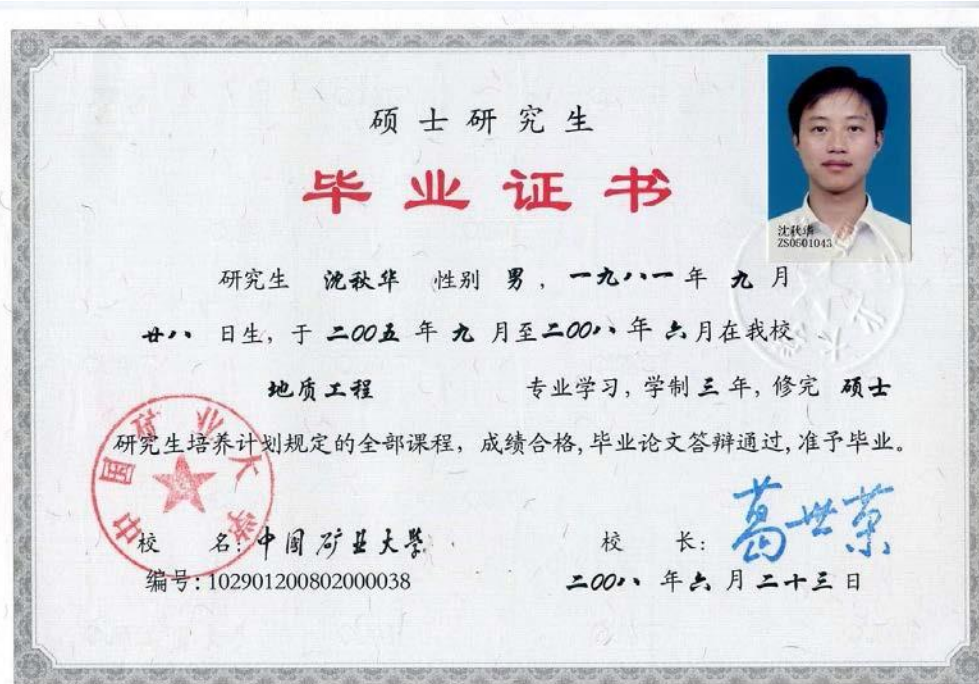 硕士研究生
毕业证书
沈秋华
ZS0501043
研究生 沈秋华 性别 男，一九八一年 九 月
廿八 日生，于 二00五 年 九 月至二00八 年 六月在我校
地质工程 专业学习，学制三年，修完 硕士
研究生培养计划规定的全部课程，成绩合格，毕业论文答辩通过，准予毕业。
中国矿业大学
校 名：中国矿业大学 校 长：葛世荣
编号：102901200802000038 二00八 年六月二十三日